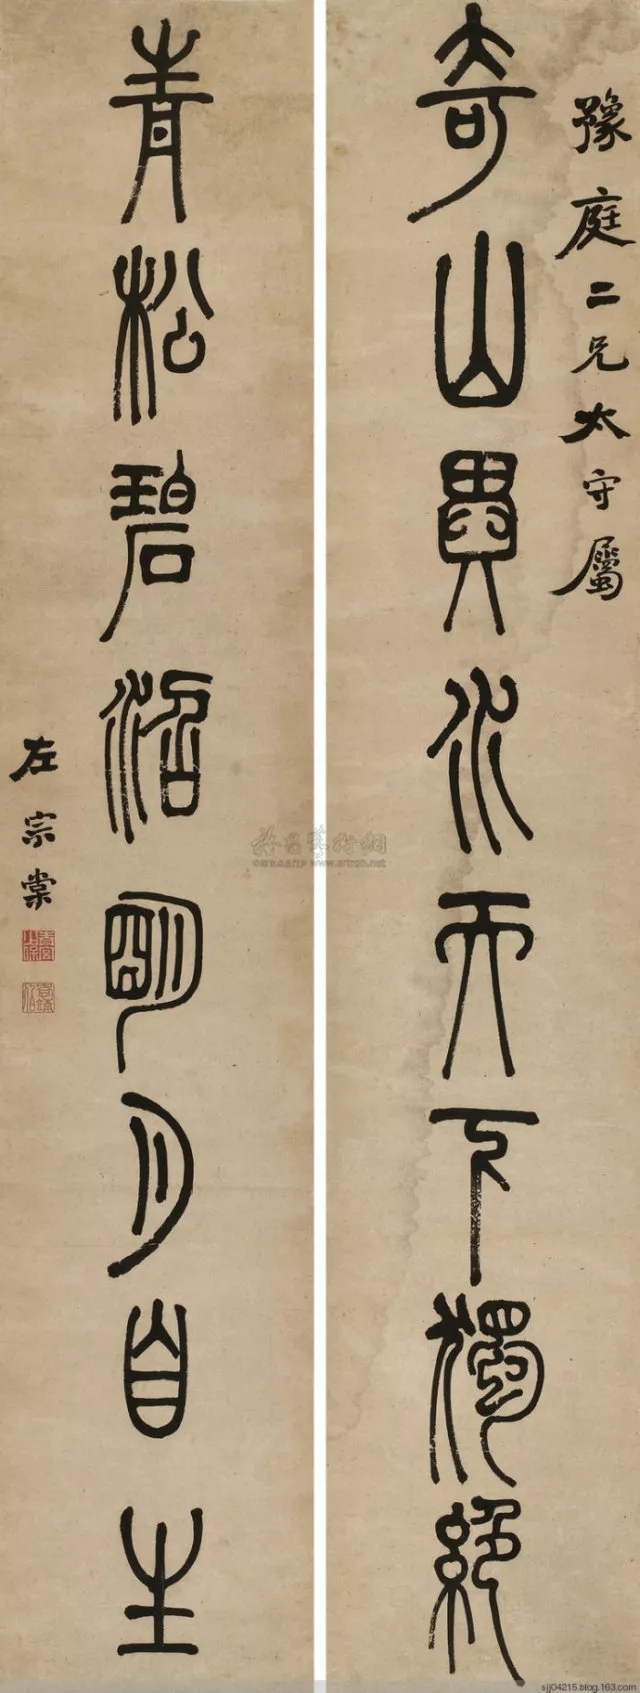 豫庭二兄太守屬
奇山異水天下獨絕
青松碧沼明月自生
左宗棠
雅昌藝術網
www.artron.net
sjj04215.blog.163.com